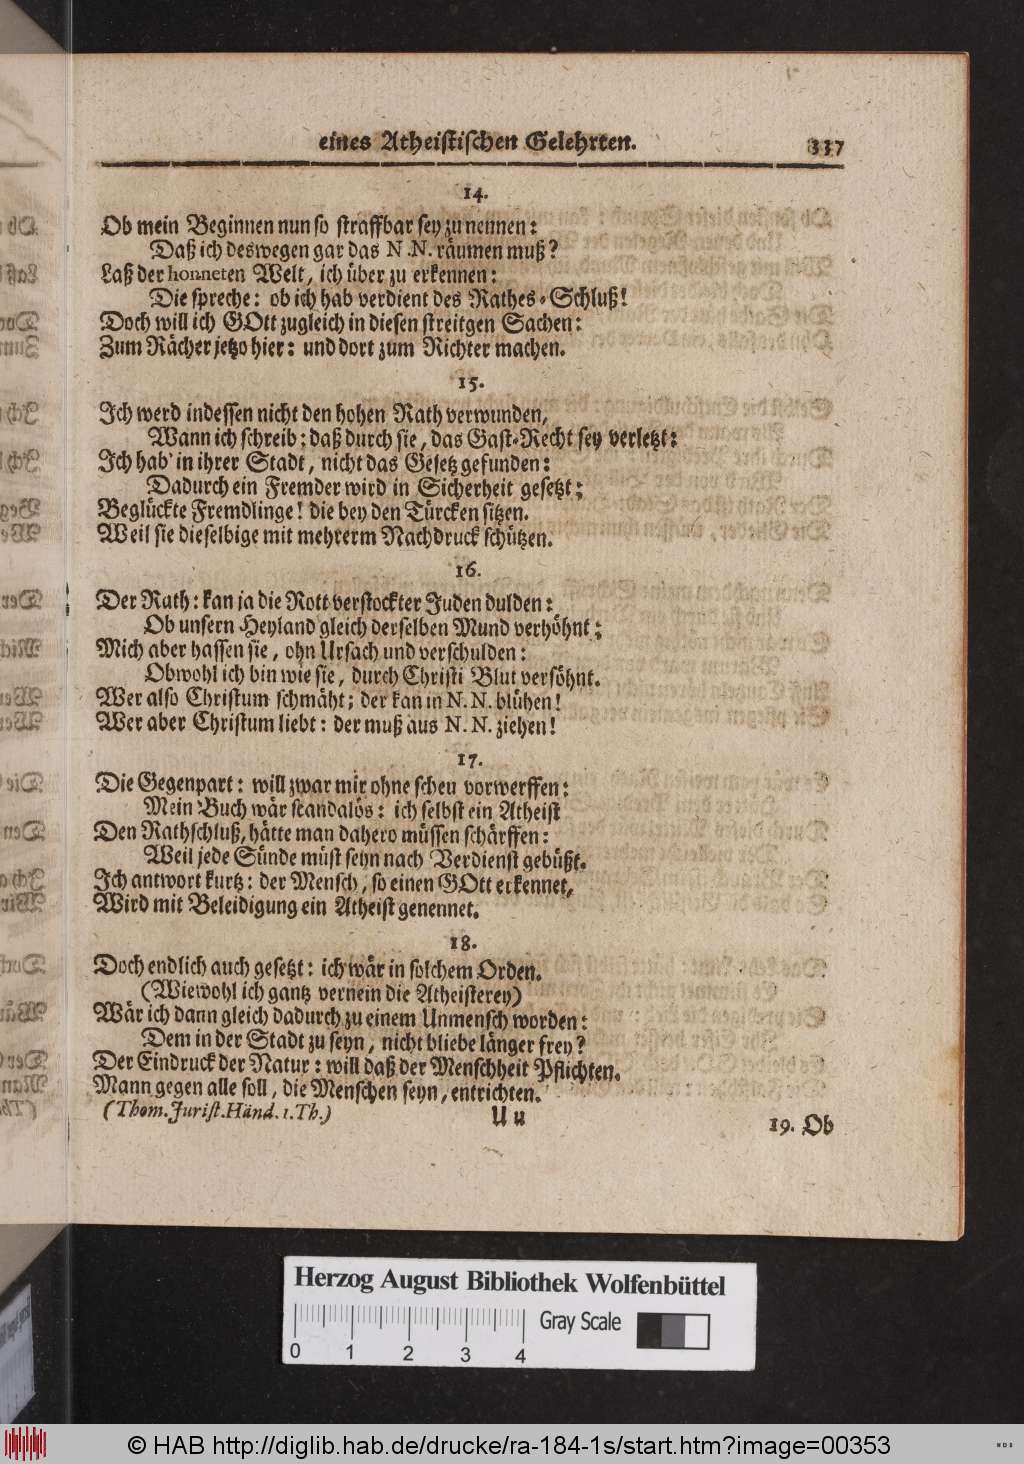 eines Atheistischen Gelehrten. 337
14.
Ob mein Beginnen nun so straffbar sey zu nennen:
Daß ich deswegen gar das N. N. räumen muß?
Laß der honneten Welt, ich über zu erkennen:
Die spreche: ob ich hab verdient des Rathes-Schluß!
Doch will ich GOtt zugleich in diesen streitgen Sachen:
Zum Rächer jetzo hier: und dort zum Richter machen.
15.
Ich werd indessen nicht den hohen Rath verwunden,
Wann ich schreib: daß durch sie, das Gast-Recht sey verletzt:
Ich hab' in ihrer Stadt, nicht das Gesetz gefunden:
Dadurch ein Fremder wird in Sicherheit gesetzt;
Beglückte Fremdlinge! die bey den Türcken sitzen.
Weil sie dieselbige mit mehrerm Nachdruck schützen.
16.
Der Rath: kan ja die Rott verstockter Juden dulden:
Ob unsern Heyland gleich derselben Mund verhöhnt;
Mich aber hassen sie, ohn Ursach und verschulden:
Obwohl ich bin wie sie, durch Christi Blut versöhnt.
Wer also Christum schmäht; der kan in N. N. blühen!
Wer aber Christum liebt: der muß aus N. N. ziehen!
17.
Die Gegenpart: will zwar mir ohne scheu vorwerffen:
Mein Buch wär scandalös: ich selbst ein Atheist
Den Rathschluß, hätte man dahero müssen schärffen:
Weil jede Sünde müst seyn nach Verdienst gebüßt.
Ich antwort kurtz: der Mensch, so einen GOtt erkennet,
Wird mit Beleidigung ein Atheist genennet.
18.
Doch endlich auch gesetzt: ich wär in solchem Orden.
(Wiewohl ich gantz vernein die Atheisterey)
Wär ich dann gleich dadurch zu einem Unmensch worden:
Dem in der Stadt zu seyn, nicht bliebe länger frey?
Der Eindruck der Natur: will daß der Menschheit Pflichten.
Mann gegen alle soll, die Menschen seyn, entrichten.
(Thom. Jurist. Händ. 1. Th.) U u
19. Ob
Herzog August Bibliothek Wolfenbüttel
0 1 2 3 4 Gray Scale
© HAB http://diglib.hab.de/drucke/ra-184-1s/start.htm?image=00353